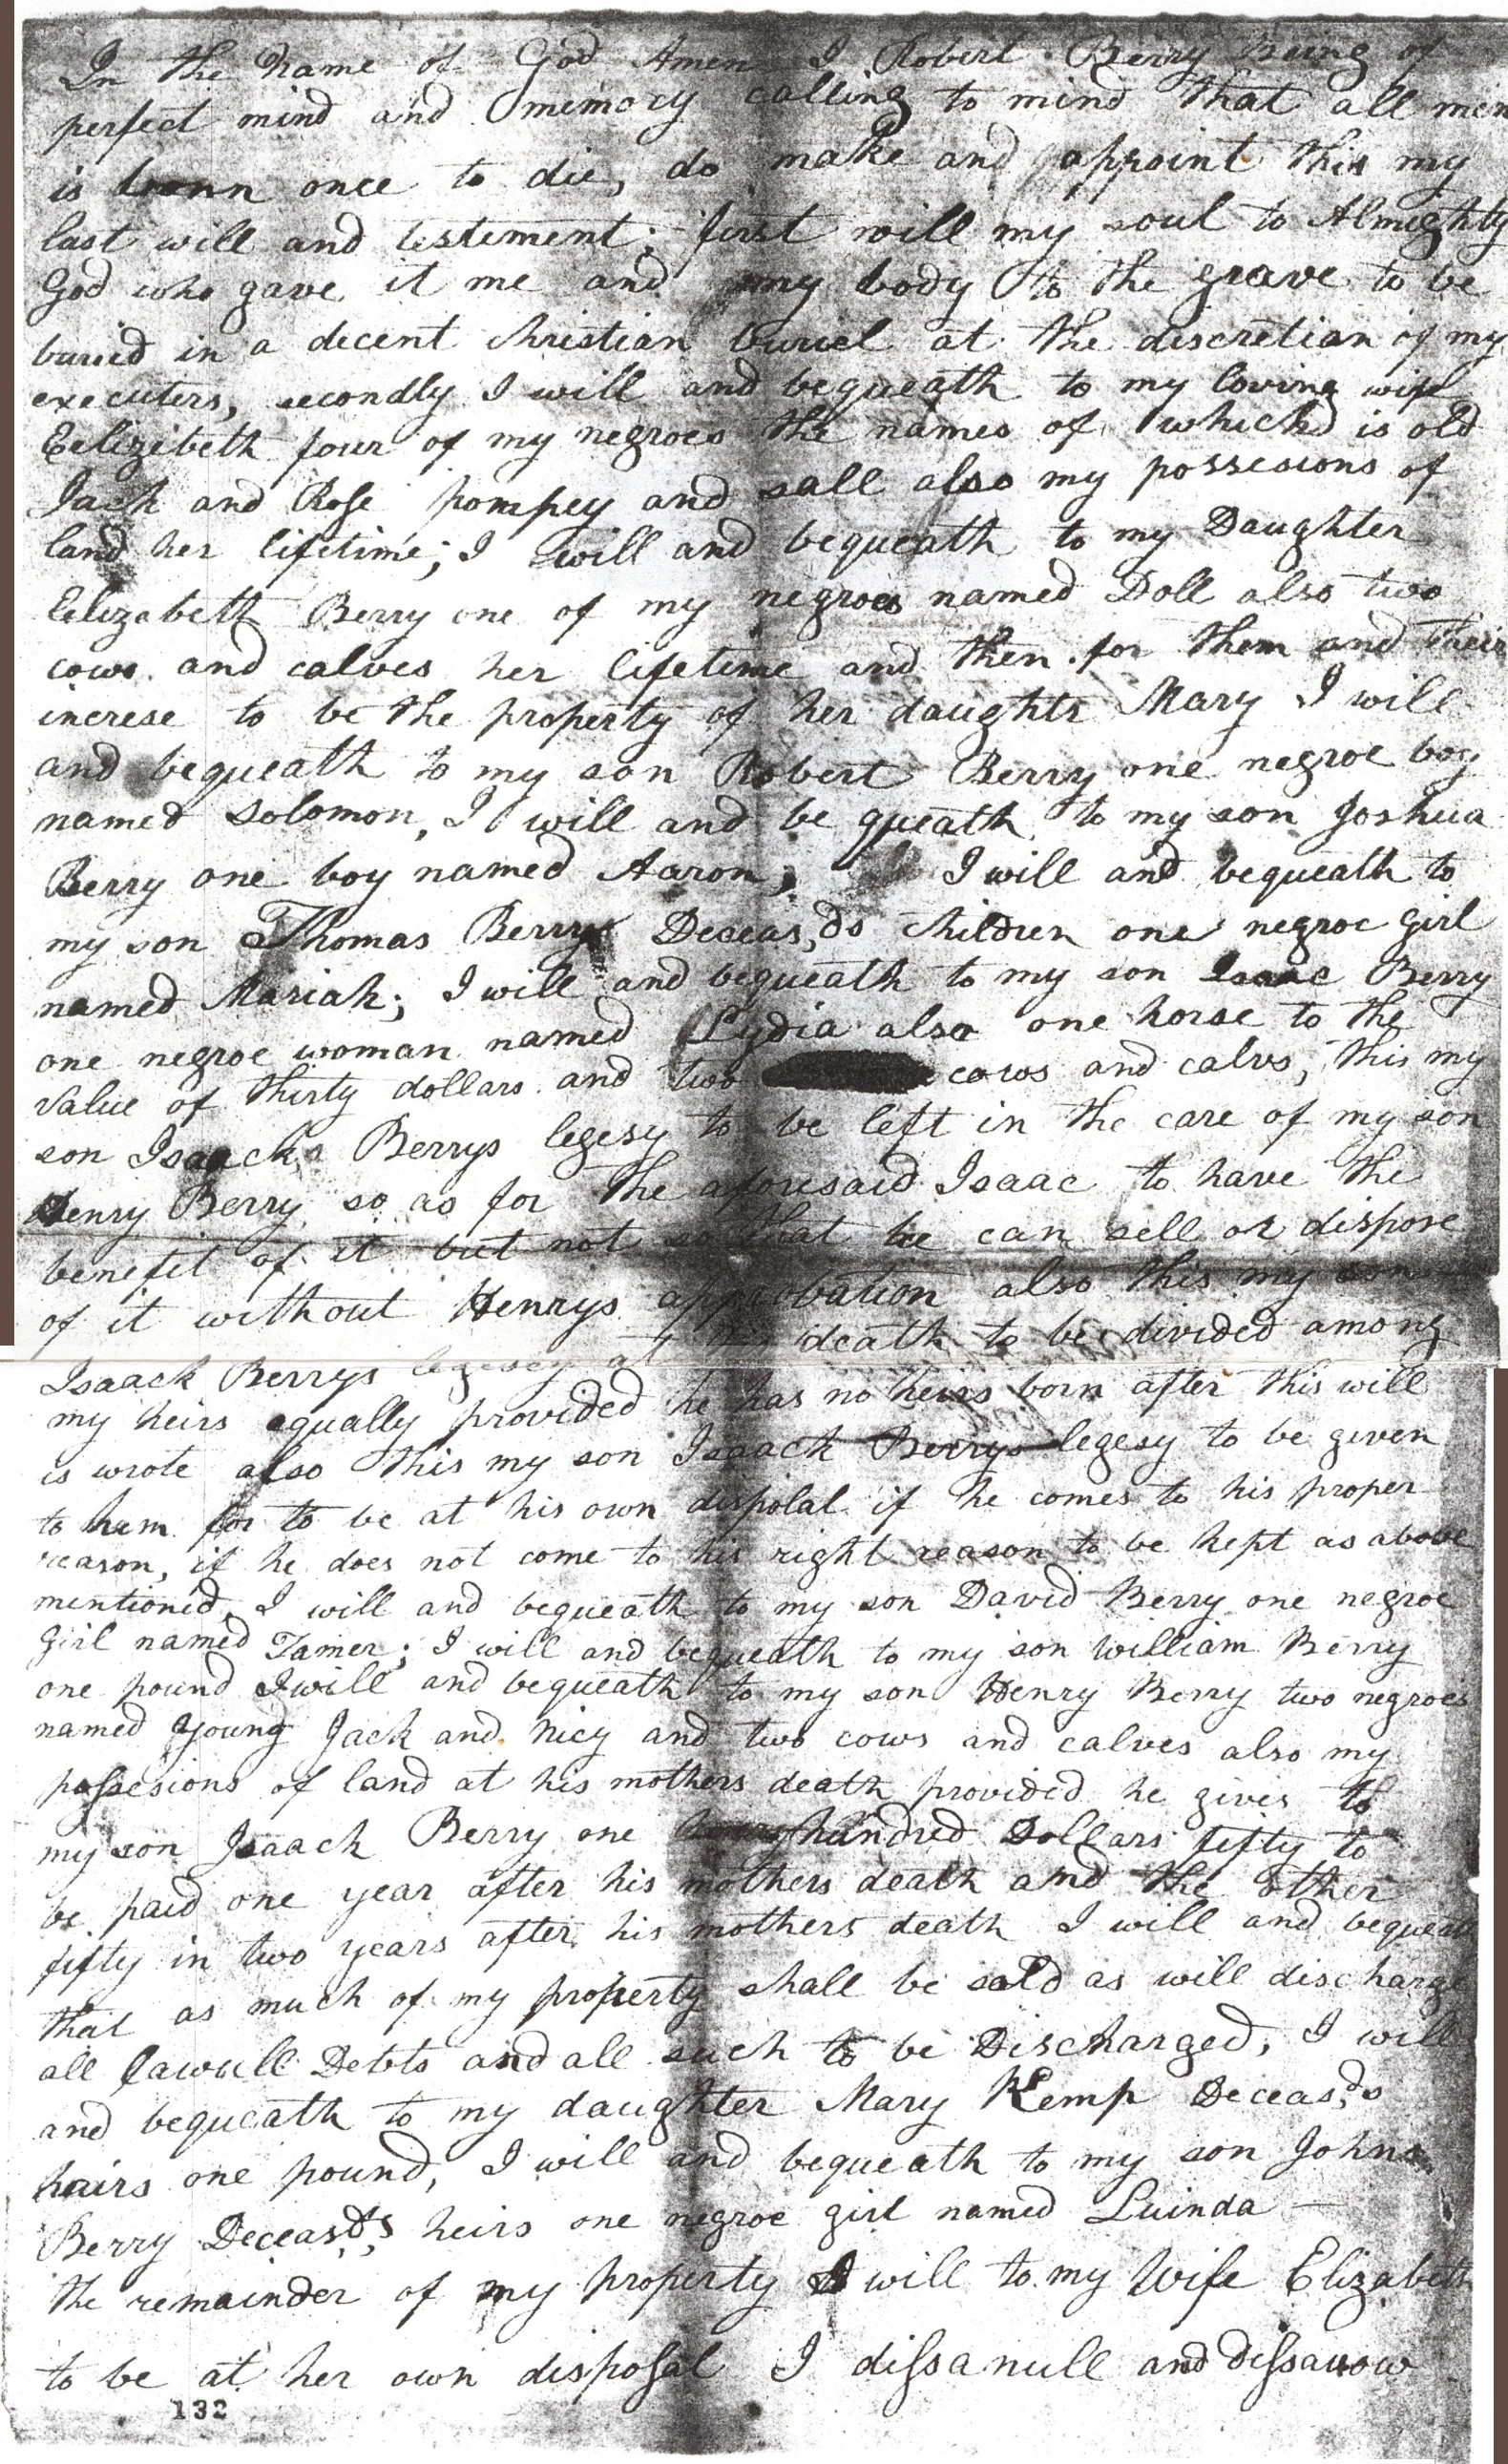 In the name of God Amen I Robert Berry Being of
perfect mind and memory calling to mind that all men
is born once to die, do make and appoint this my
last will and testement; first will my soul to Almighty
God who gave it me and my body to the grave to be
buried in a decent christian buriel at the discretian of my
executers, secondly I will and bequeath to my loving wife
Eelizibeth four of my negroes the names of which is old
Jack and Rose pompey and sall also my possesions of
land her lifetime; I will and bequeath to my Daughter
Elizabeth Berry one of my negroes named Doll also two
cows and calves her lifetime and then for them and their
increse to be the property of her daughtr Mary I will
and bequeath to my son Robert Berry one negroe boy
named Solomon, I will and be queath to my son Joshua
Berry one boy named Aaron; I will and bequeath to
my son Thomas Berry Deceas,ds children one negroe girl
named Mariah; I will and bequeath to my son Isaac Berry
one negroe woman named Lydia also one horse to the
value of thirty dollars and two cows and calvs, this my
son Isaack Berrys legesy to be left in the care of my son
Henry Berry so as for the aforesaid Isaac to have the
benefit of it but not so that he can sell or dispose
of it without Henrys approbation also this my son
Isaack Berrys legesey at his death to be divided among
my heirs equally provided he has no heirs born after this will
is wrote also this my son Isaack Berrys legesy to be given
to him for to be at his own dispolal if he comes to his proper
reason, if he does not come to his right reason to be kept as above
mentioned, I will and bequeath to my son David Berry one negroe
girl named Tamer; I will and bequeath to my son William Berry
one pound I will and bequeath to my son Henry Berry two negroes
named Young Jack and Nicy and two cows and calves also my
possesions of land at his mothers death provided he gives to
my son Isaack Berry one hundred Dollars fifty to
be paid one year after his mothers death and the other
fifty in two years after his mothers death I will and bequeath
that as much of my property shall be sold as will discharge
all lawull Debts and all such to be Discharged, I will
and bequeath to my daughter Mary Kemp Deceas,ds
hairs one pound, I will and bequeath to my son Johns
Berry Deceas,ds heirs one negroe girl named Luinda
the remainder of my property I will to my Wife Elizabeth
to be at her own disposal I dissanull and dissavow
132